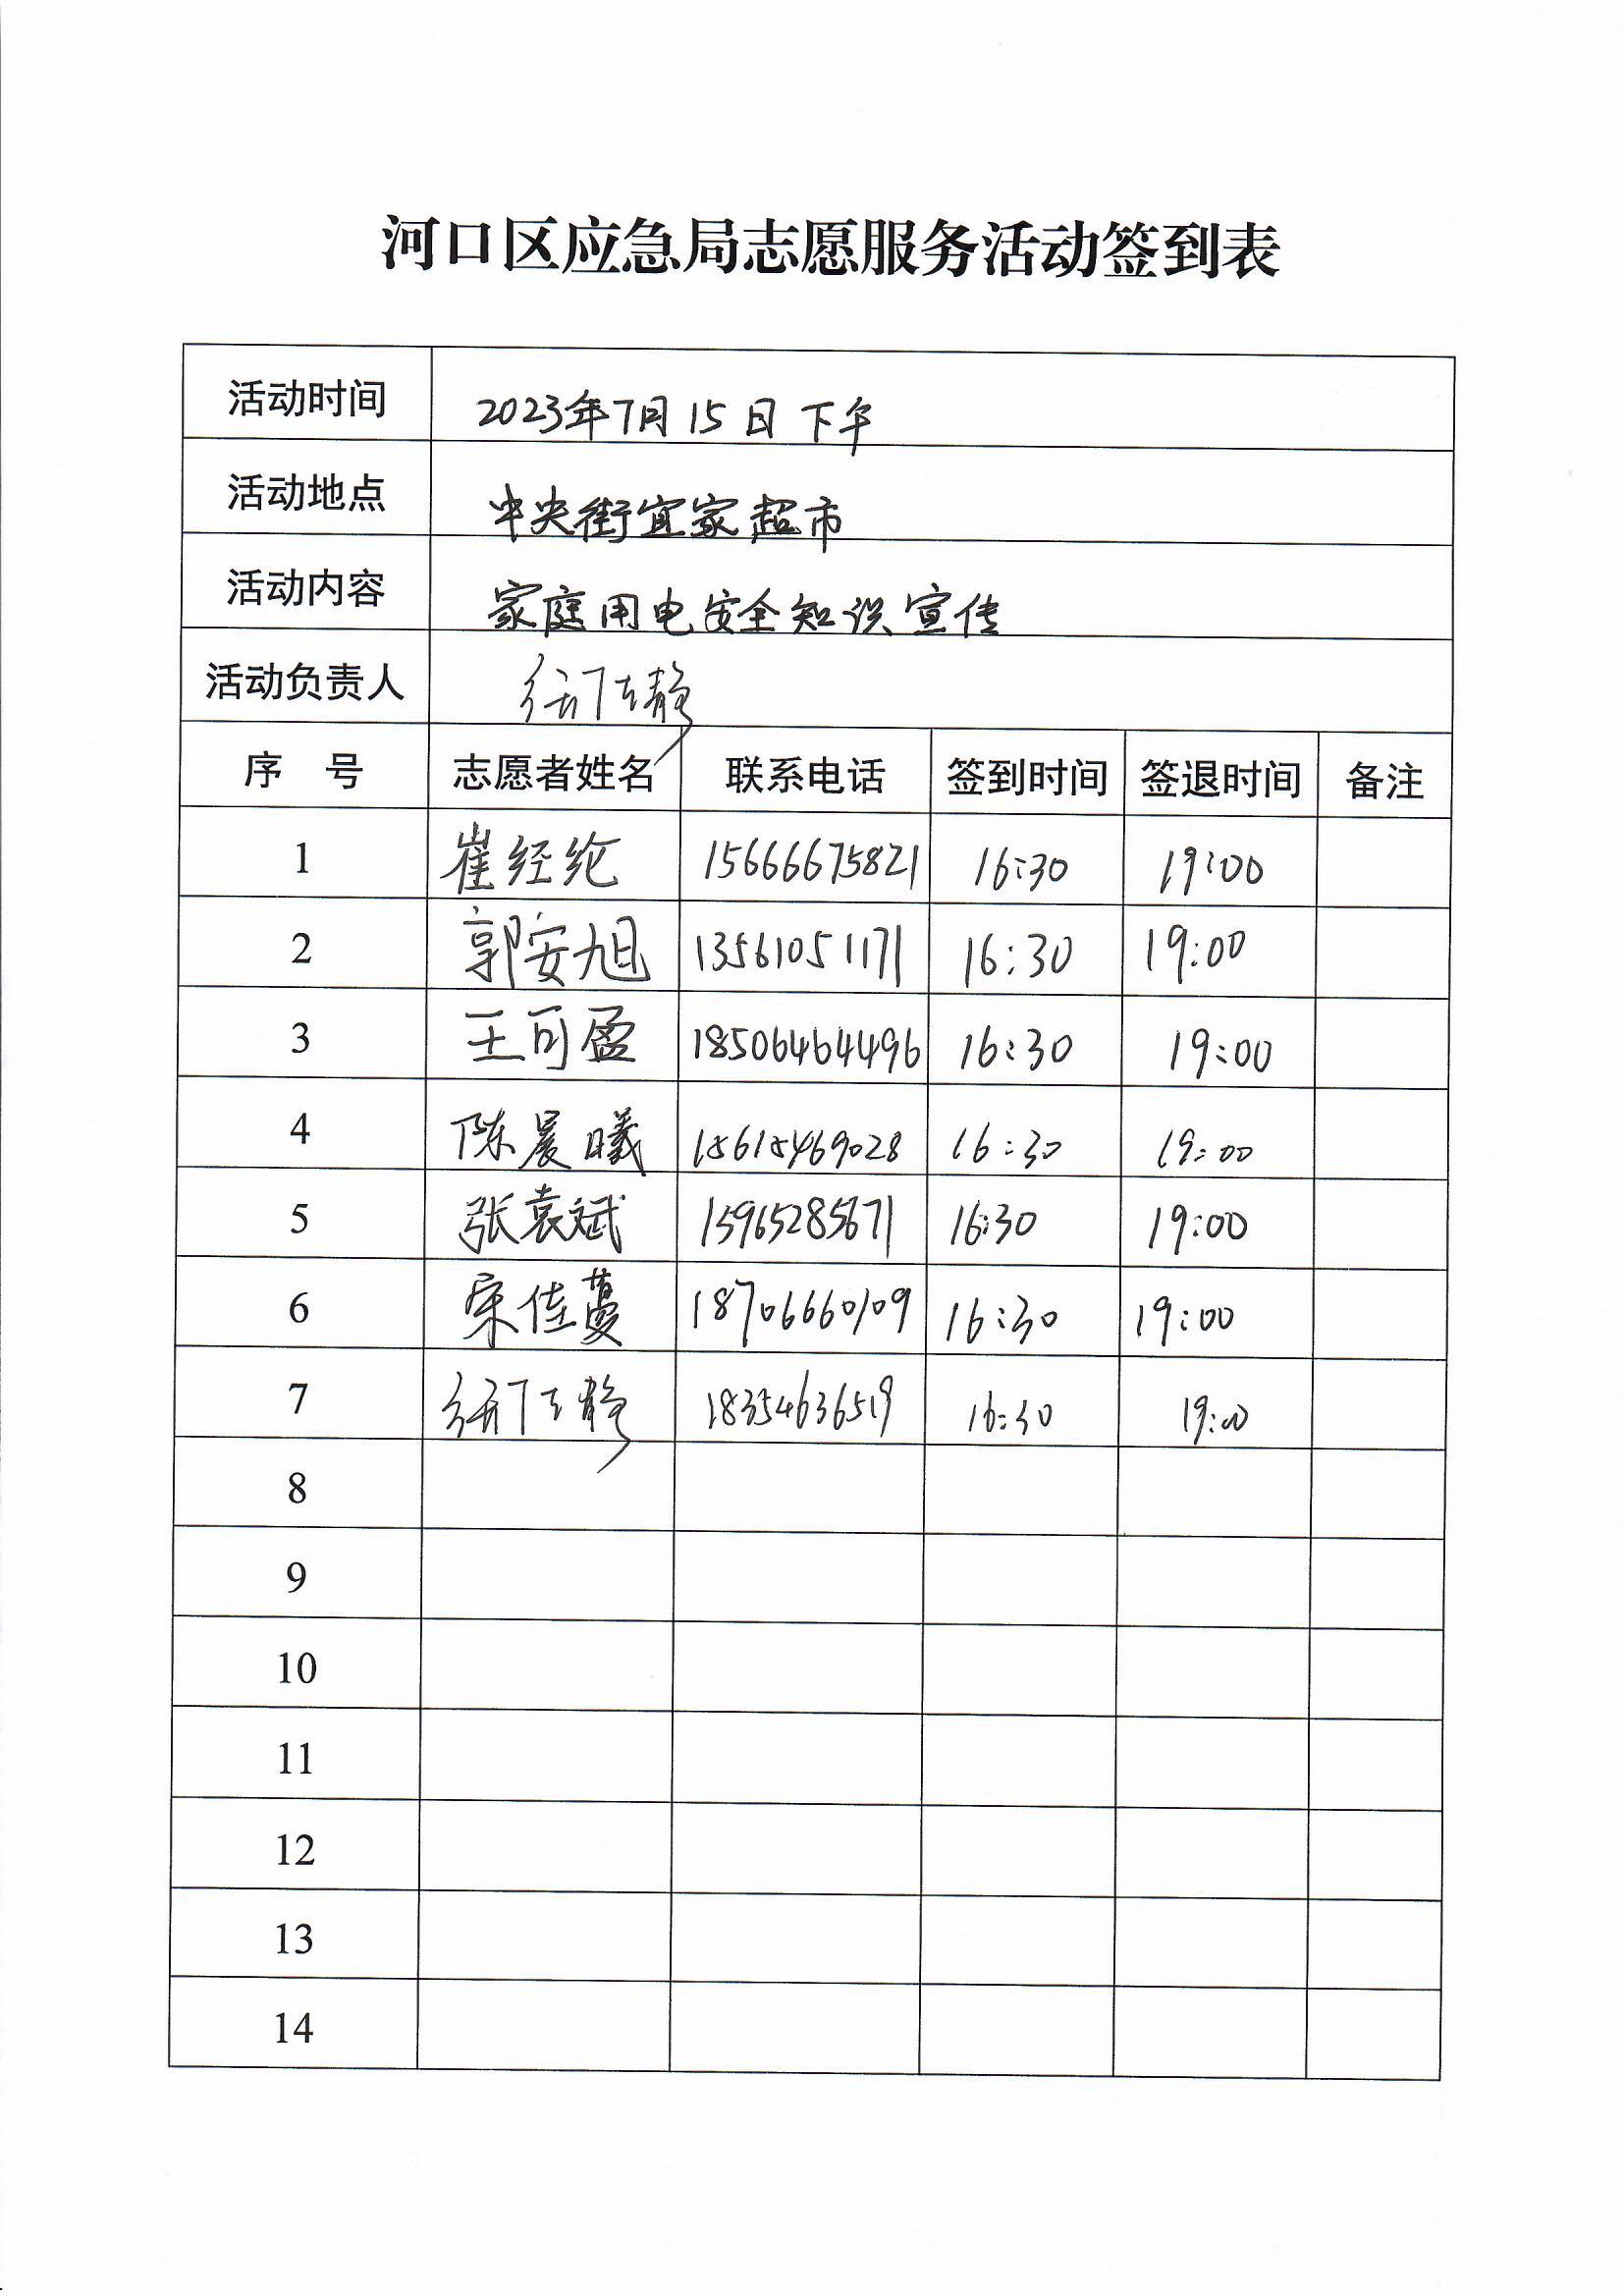 河口区应急局志愿服务活动签到表
活动时间 2023年7月15日下午
活动地点 中央街宜家超市
活动内容 家庭用电安全知识宣传
活动负责人 静
序 号 志愿者姓名 联系电话 签到时间 签退时间 备注
1 崔经纶 15666675821 16:30 19:00
2 郭安旭 13561051171 16:30 19:00
3 王可盈 18506464496 16:30 19:00
4 陈晨曦 15615469028 16:30 19:00
5 张袁斌 15965285671 16:30 19:00
6 宋佳蔓 18706660109 16:30 19:00
7 静 18354636519 16:30 19:00
8
9
10
11
12
13
14